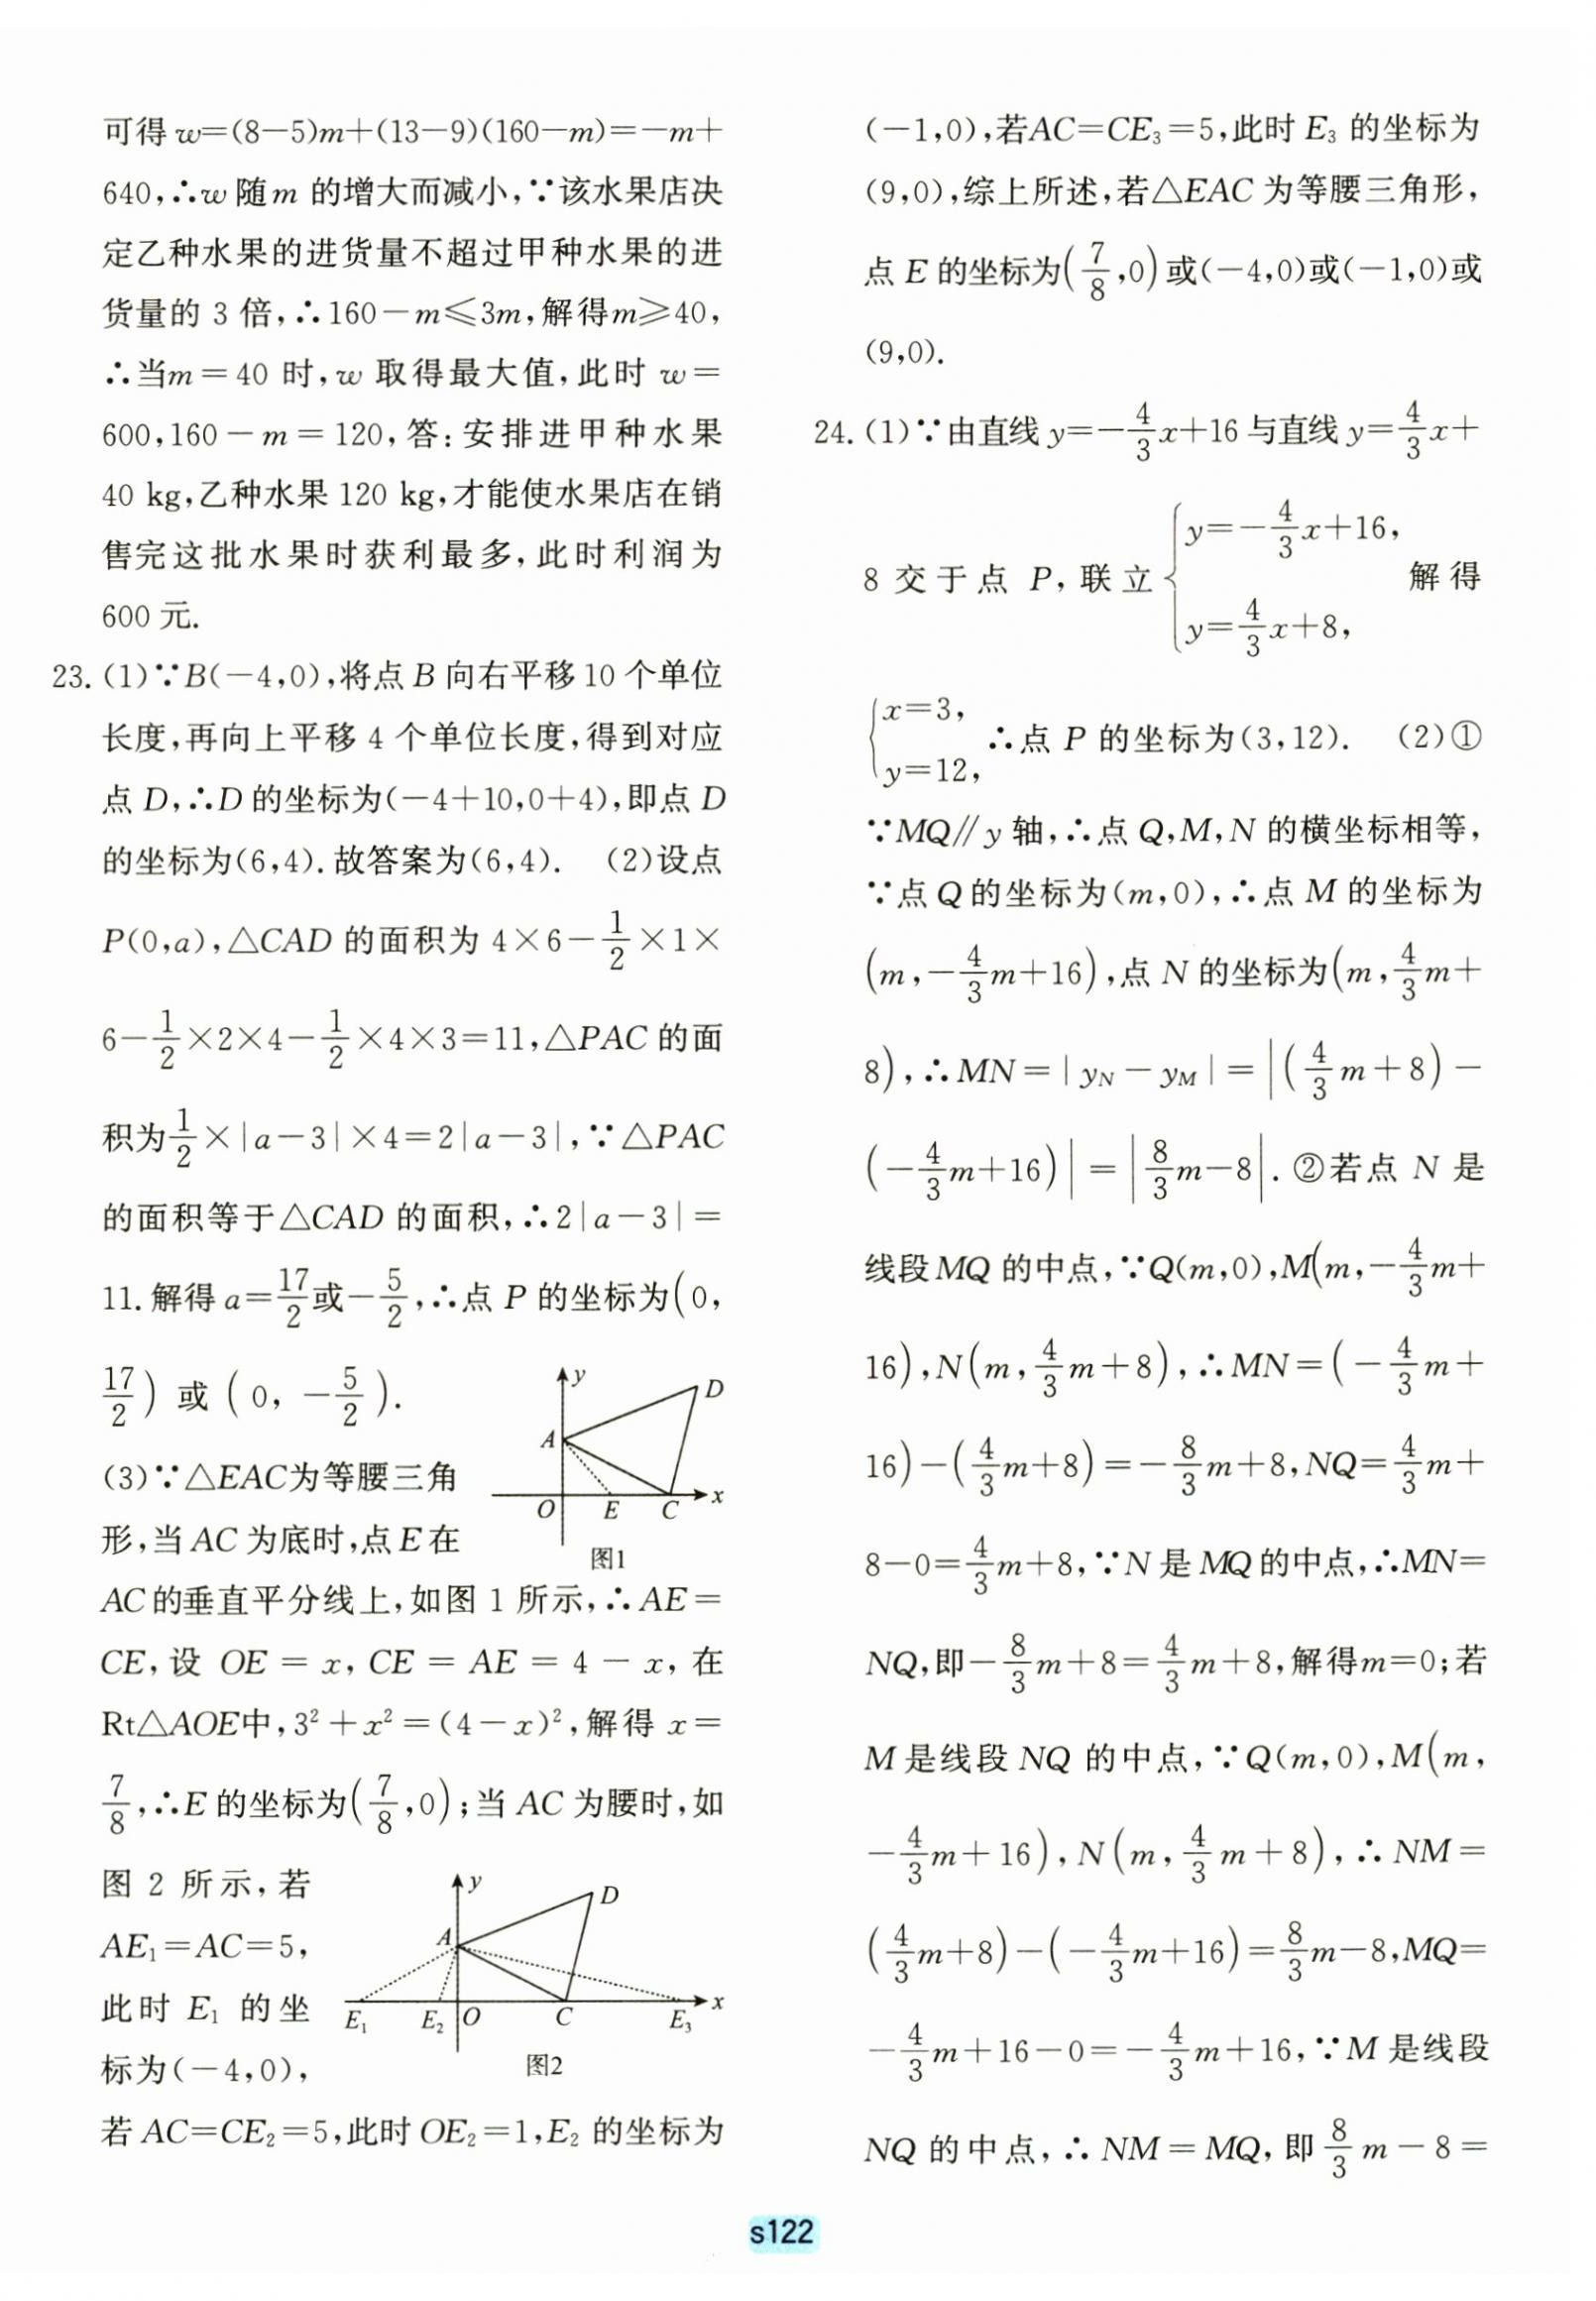 可得 w=(8-5)m+(13-9)(160-m)=-m+
640,∴w 随 m 的增大而减小,∵该水果店决
定乙种水果的进货量不超过甲种水果的进
货量的 3 倍,∴160-m≤3m,解得m≥40,
∴当m=40 时,w 取得最大值,此时 w=
600,160-m=120,答:安排进甲种水果
40 kg,乙种水果 120 kg,才能使水果店在销
售完这批水果时获利最多,此时利润为
600 元.
23.(1)∵B(-4,0),将点 B 向右平移 10 个单位
长度,再向上平移 4 个单位长度,得到对应
点 D,∴D 的坐标为(-4+10,0+4),即点 D
的坐标为(6,4).故答案为(6,4). (2)设点
P(0,a),△CAD 的面积为 4×6-1/2×1×
6-1/2×2×4-1/2×4×3=11,△PAC 的面
积为1/2×|a-3|×4=2|a-3|,∵△PAC
的面积等于△CAD 的面积,∴2|a-3|=
11.解得 a=17/2或-5/2,∴点 P 的坐标为(0,
17/2) 或 (0,-5/2).
(3)∵△EAC为等腰三角
形,当 AC 为底时,点 E 在
y
D
A
O
E
C
x
图1
AC的垂直平分线上,如图 1 所示,∴AE=
CE,设 OE=x,CE=AE=4-x,在
Rt△AOE中,3²+x²=(4-x)²,解得 x=
7/8,∴E 的坐标为(7/8,0);当 AC 为腰时,如
图 2 所示,若
AE₁=AC=5,
此时 E₁ 的坐
标为(-4,0),
y
D
A
E₁
E₂
O
C
E₃
x
图2
若 AC=CE₂=5,此时 OE₂=1,E₂ 的坐标为
(-1,0),若AC=CE₃=5,此时 E₃ 的坐标为
(9,0),综上所述,若△EAC 为等腰三角形,
点 E 的坐标为(7/8,0)或(-4,0)或(-1,0)或
(9,0).
24.(1)∵由直线 y=-4/3x+16 与直线 y=4/3x+
8 交于点 P,联立{y=-4/3x+16, y=4/3x+8, 解得
{x=3, y=12, ∴点 P 的坐标为(3,12). (2)①
∵MQ∥y 轴,∴点 Q,M,N 的横坐标相等,
∵点 Q 的坐标为(m,0),∴点 M 的坐标为
(m,-4/3m+16),点 N 的坐标为(m,4/3m+
8),∴MN=|y_N-y_M|=|(4/3m+8)-
(-4/3m+16)|=|8/3m-8|.②若点 N 是
线段MQ 的中点,∵Q(m,0),M(m,-4/3m+
16),N(m,4/3m+8),∴MN=(-4/3m+
16)-(4/3m+8)=-8/3m+8,NQ=4/3m+
8-0=4/3m+8,∵N 是 MQ 的中点,∴MN=
NQ,即-8/3m+8=4/3m+8,解得m=0;若
M 是线段 NQ 的中点,∵Q(m,0),M(m,
-4/3m+16),N(m,4/3m+8),∴NM=
(4/3m+8)-(-4/3m+16)=8/3m-8,MQ=
-4/3m+16-0=-4/3m+16,∵M 是线段
NQ 的中点,∴NM=MQ,即 8/3m-8=
s122